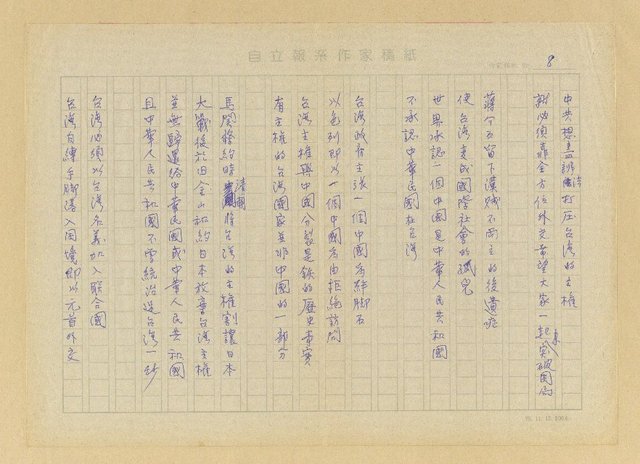 自立報系作家稿紙
8
中共想盡辦法打压台灣的主權
就必須靠全方位外交希望大家一起來突破困局
蔣介石留下漢賊不兩立的後遺症
使台灣変成國際社會的孤兒
世界承認一個中國是中華人民共和國
不承認中華民國在台灣
台灣政府主張一個中國為絆脚石
以色列即以一個中國為由拒絕訪問
台灣主權與中國分裂是鉄的歷史事實
有主權的台灣國家並非中國的一部分
馬関條約時清朝將台灣的主權割讓日本
大戰後於旧金山和約日本放棄台灣主權
並無歸還給中華民國或中華人民共和國
且中華人民共和國不曾統治过台灣一秒
台灣必須以台灣名義加入聯合國
台灣自縛手脚陷入困境即以元首外交